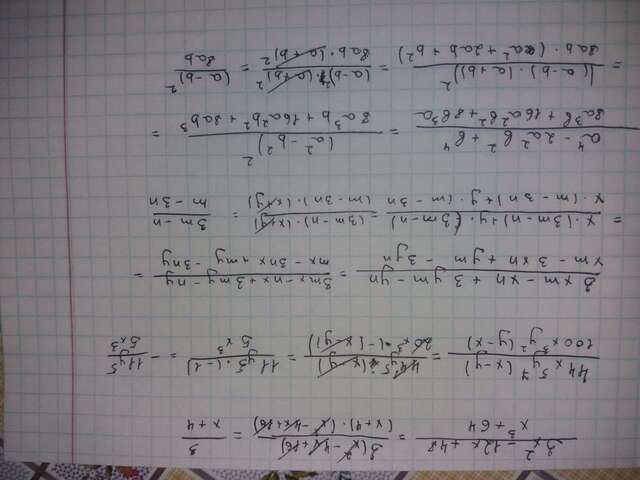 (3x² - 12x + 48)/(x³ + 64) = (3(x² - 4x + 16))/((x+4)·(x² - 4x + 16)) = 3/(x + 4)
= (11y⁵·(-1))/(5x³) = -(11y⁵)/(5x³)
(3xm - xn + 3ym - yn)/(xm - 3xn + ym - 3yn) = (3mx - nx + 3my - ny)/(mx - 3nx + my - 3ny) =
= (x·(3m-n) + y·(3m-n))/(x·(m-3n) + y·(m-3n)) = ((3m-n)·(x+y))/((m-3n)·(x+y)) = (3m-n)/(m-3n)
(a⁴ - 2a²b² + b⁴)/(8a³b + 16a²b² + 8b³a) = (a² - b²)²/(8a³b + 16a²b² + 8ab³) =
= ((a-b)·(a+b))²/(8ab·(a² + 2ab + b²)) = ((a-b)²·(a+b)²)/(8ab·(a+b)²) = (a-b)²/(8ab)